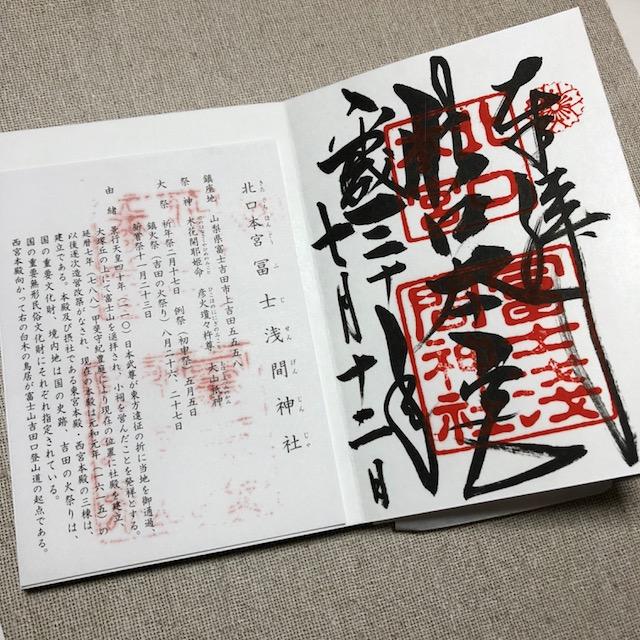 北口本宮
冨士浅間神社
十月十二日
北口本宮冨士浅間神社
鎮座地 山梨県富士吉田市上吉田五五五八
祭神 木花開耶姫命 彦火瓊々杵尊 大山祇神
大祭 祈年祭二月十七日 例祭(初申祭)五月五日
鎮火祭(吉田の火祭り)八月二十六、二十七日
新嘗祭十一月二十三日
由緒 景行天皇四十年(一一〇)日本武尊が東方遠征の折に当地を御通過
大塚丘の上にて富士山を遥拝され、小祠を営んだことを発祥とする。
延暦七年(七八八)甲斐守紀豊庭により現在の位置に社殿を建立、
以後逐次造営改築がなされ、現在の本殿は元和元年(一六一五)の
建立である。本殿及び摂社である東宮本殿・西宮本殿の三棟は、
国の重要文化財、境内地は国の史跡、吉田の火祭りは、
国の重要無形民俗文化財にそれぞれ指定されている。
西宮本殿向かって右の白木の鳥居が富士山吉田口登山道の起点である。